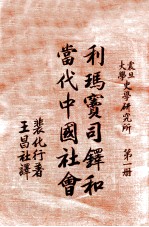 震旦大學史學研究所 第一册
利瑪竇司鐸和
當代中國社會
裴化行著
王昌社譯